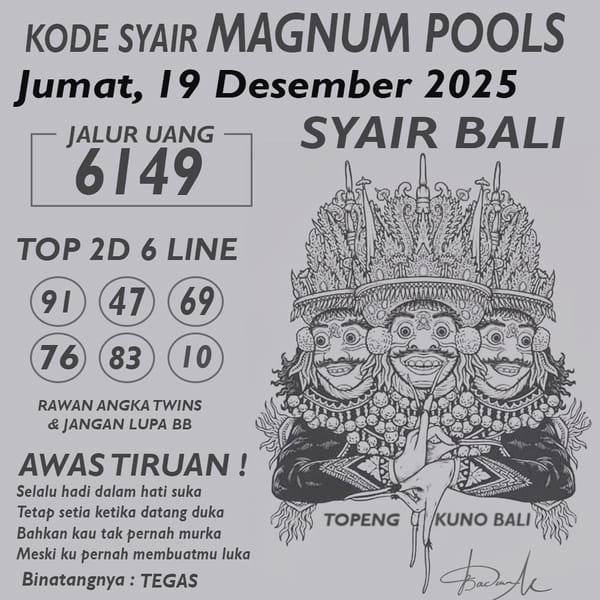 KODE SYAIR MAGNUM POOLS
Jumat, 19 Desember 2025
JALUR UANG
6149
SYAIR BALI
TOP 2D 6 LINE
91 47 69
76 83 10
RAWAN ANGKA TWINS
& JANGAN LUPA BB
AWAS TIRUAN !
Selalu hadi dalam hati suka
Tetap setia ketika datang duka
Bahkan kau tak pernah murka
Meski ku pernah membuatmu luka
Binatangnya : TEGAS
TOPENG KUNO BALI